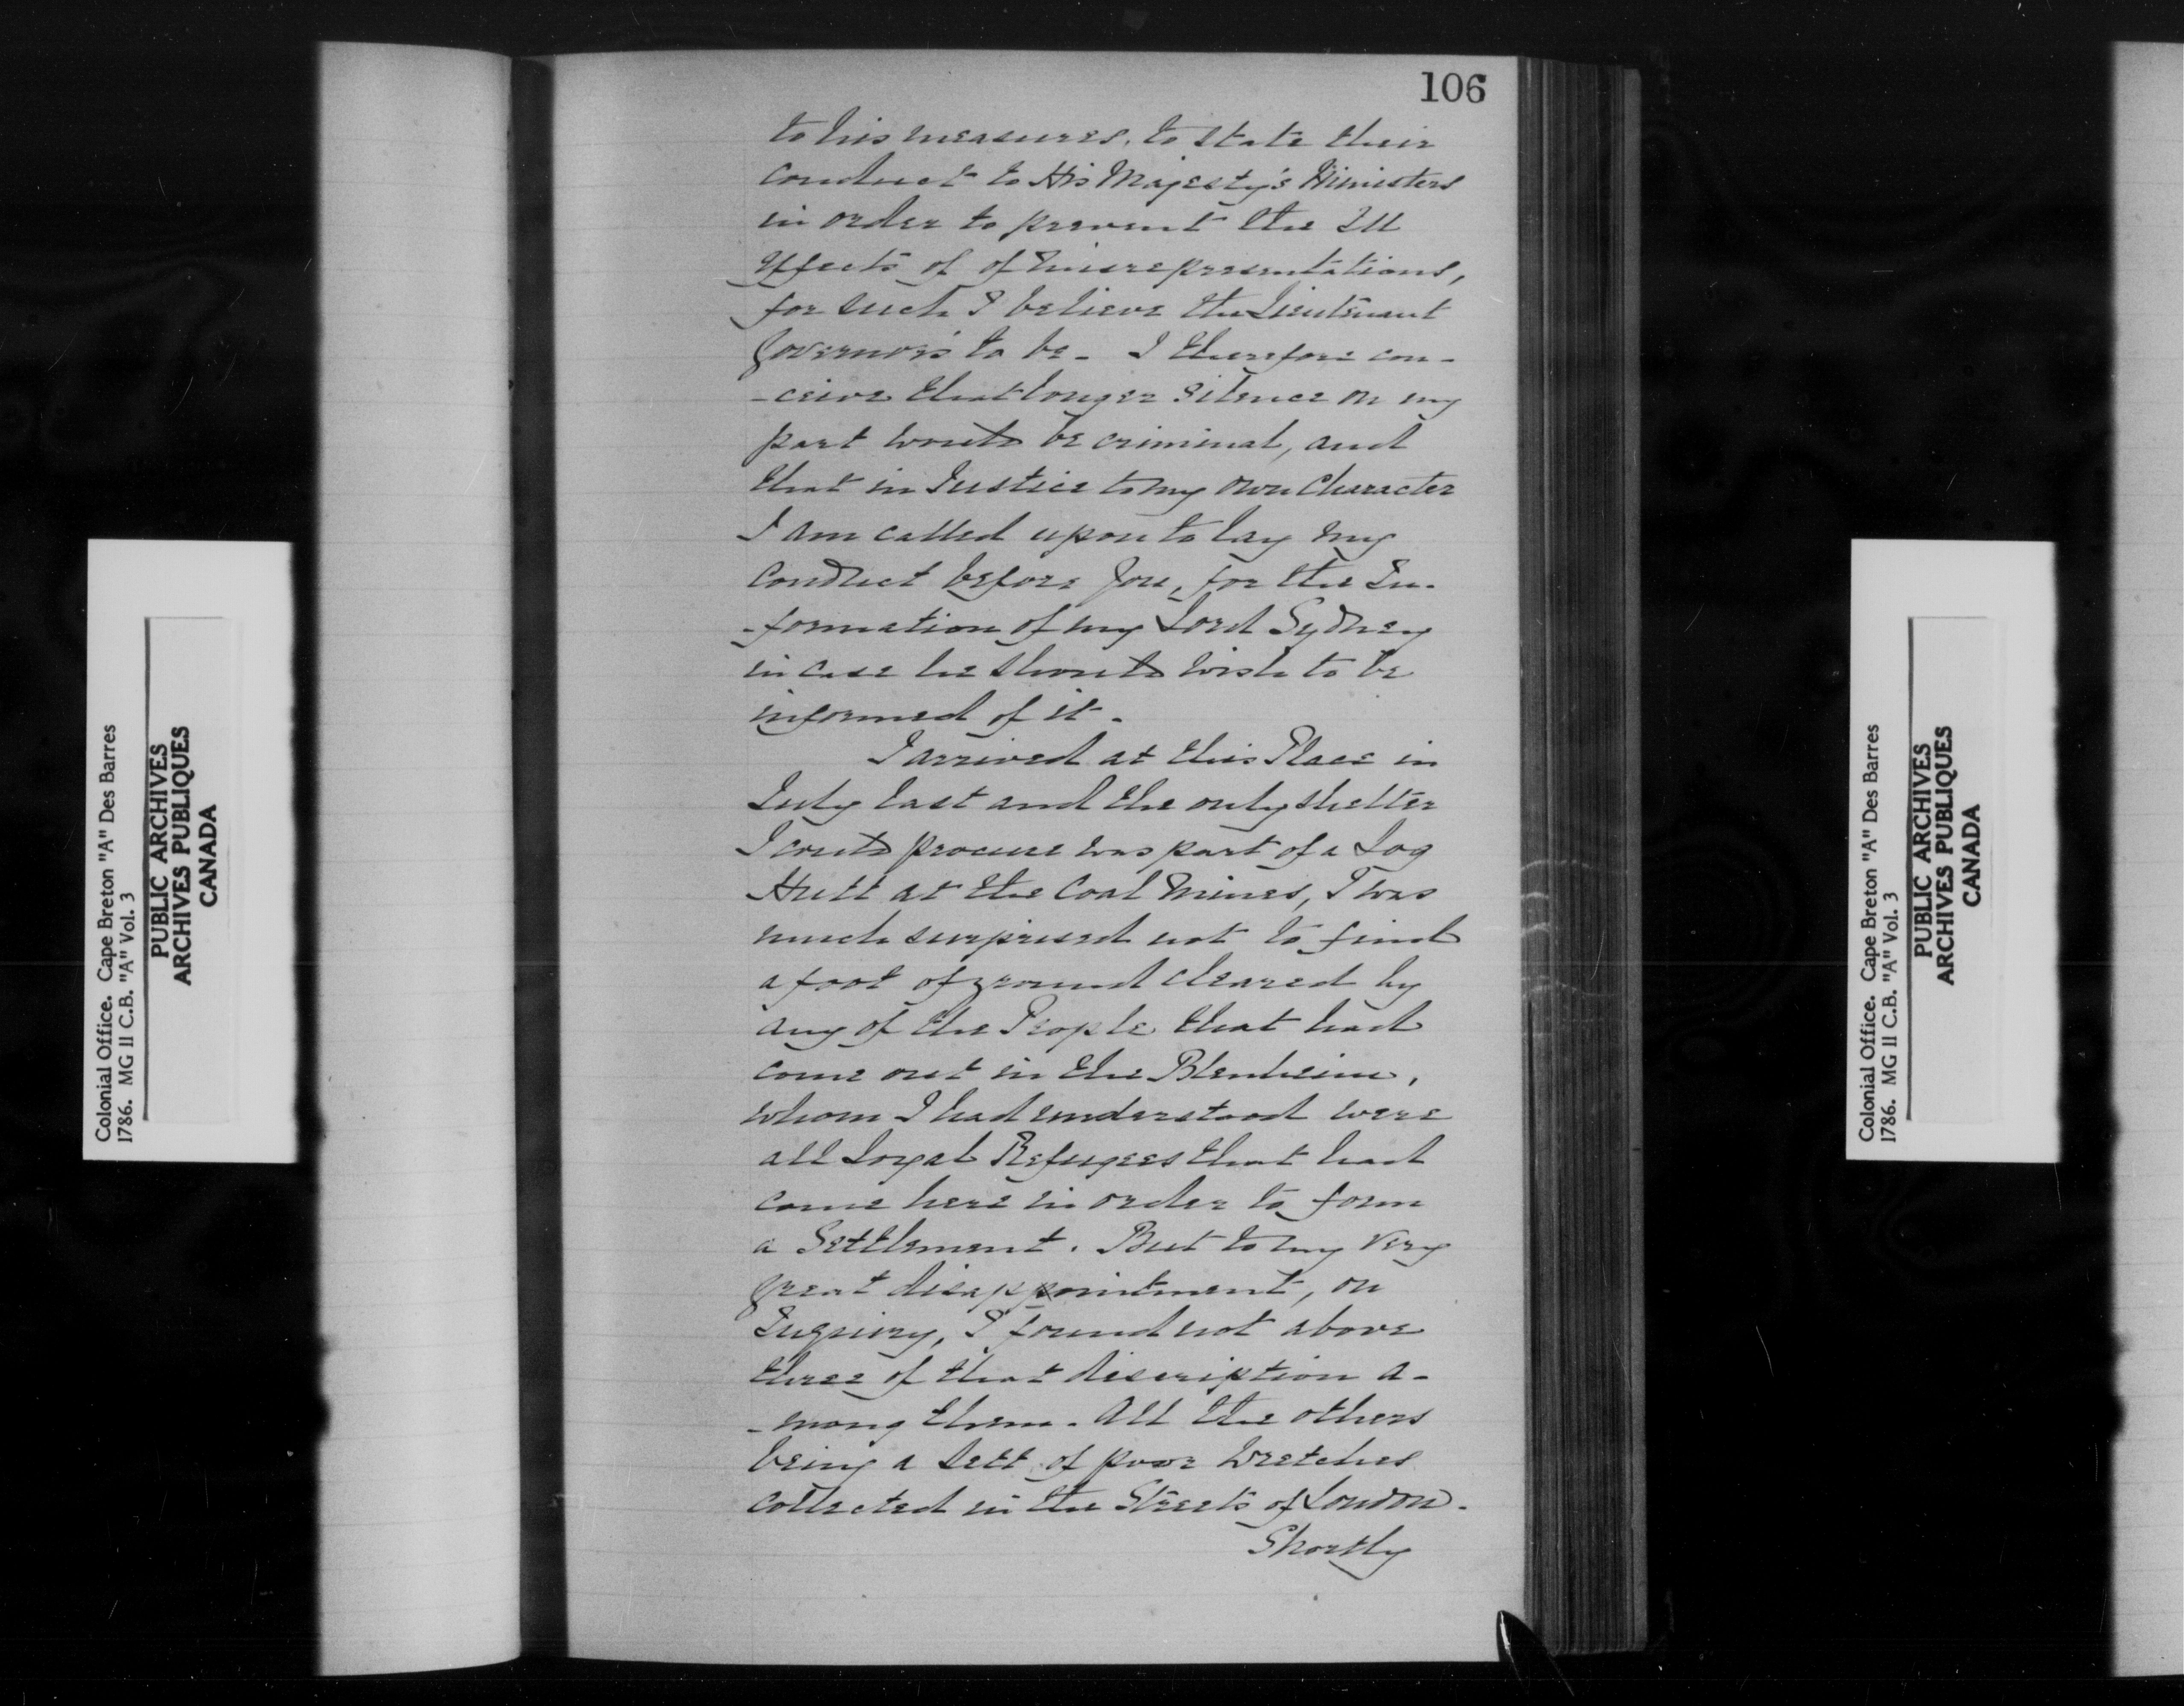 106
to his measures, to state their
conduct to His Majesty's Ministers
in order to prevent the Ill
effects of of misrepresentations,
for such I believe the Lieutenant
Governor's to be - I therefore con-
-ceive that longer silence on my
part would be criminal, and
that in Justice to my own Character
I am called upon to lay my
conduct before you, for the In-
-formation of my Lord Sydney
in case he should wish to be
informed of it -
I arrived at this Place in
July last and the only shelter
I could procure was part of a Log
Hutt at the Coal Mines, I was
much surprised not to find
a foot of ground cleared by
any of the People that had
come out in the Blenheim,
whom I had understood were
all Loyal Refugees that had
come here in order to form
a Settlement. But to my very
great disappointment, on
Inquiry, I found not above
three of that discription a-
-mong them. All the others
being a sett of poor wretches
collected in the Streets of London -
Shortly
Colonial Office. Cape Breton "A" Des Barres
1786. MG II C.B. "A" Vol. 3
PUBLIC ARCHIVES
ARCHIVES PUBLIQUES
CANADA
Colonial Office. Cape Breton "A" Des Barres
1786. MG II C.B. "A" Vol. 3
PUBLIC ARCHIVES
ARCHIVES PUBLIQUES
CANADA